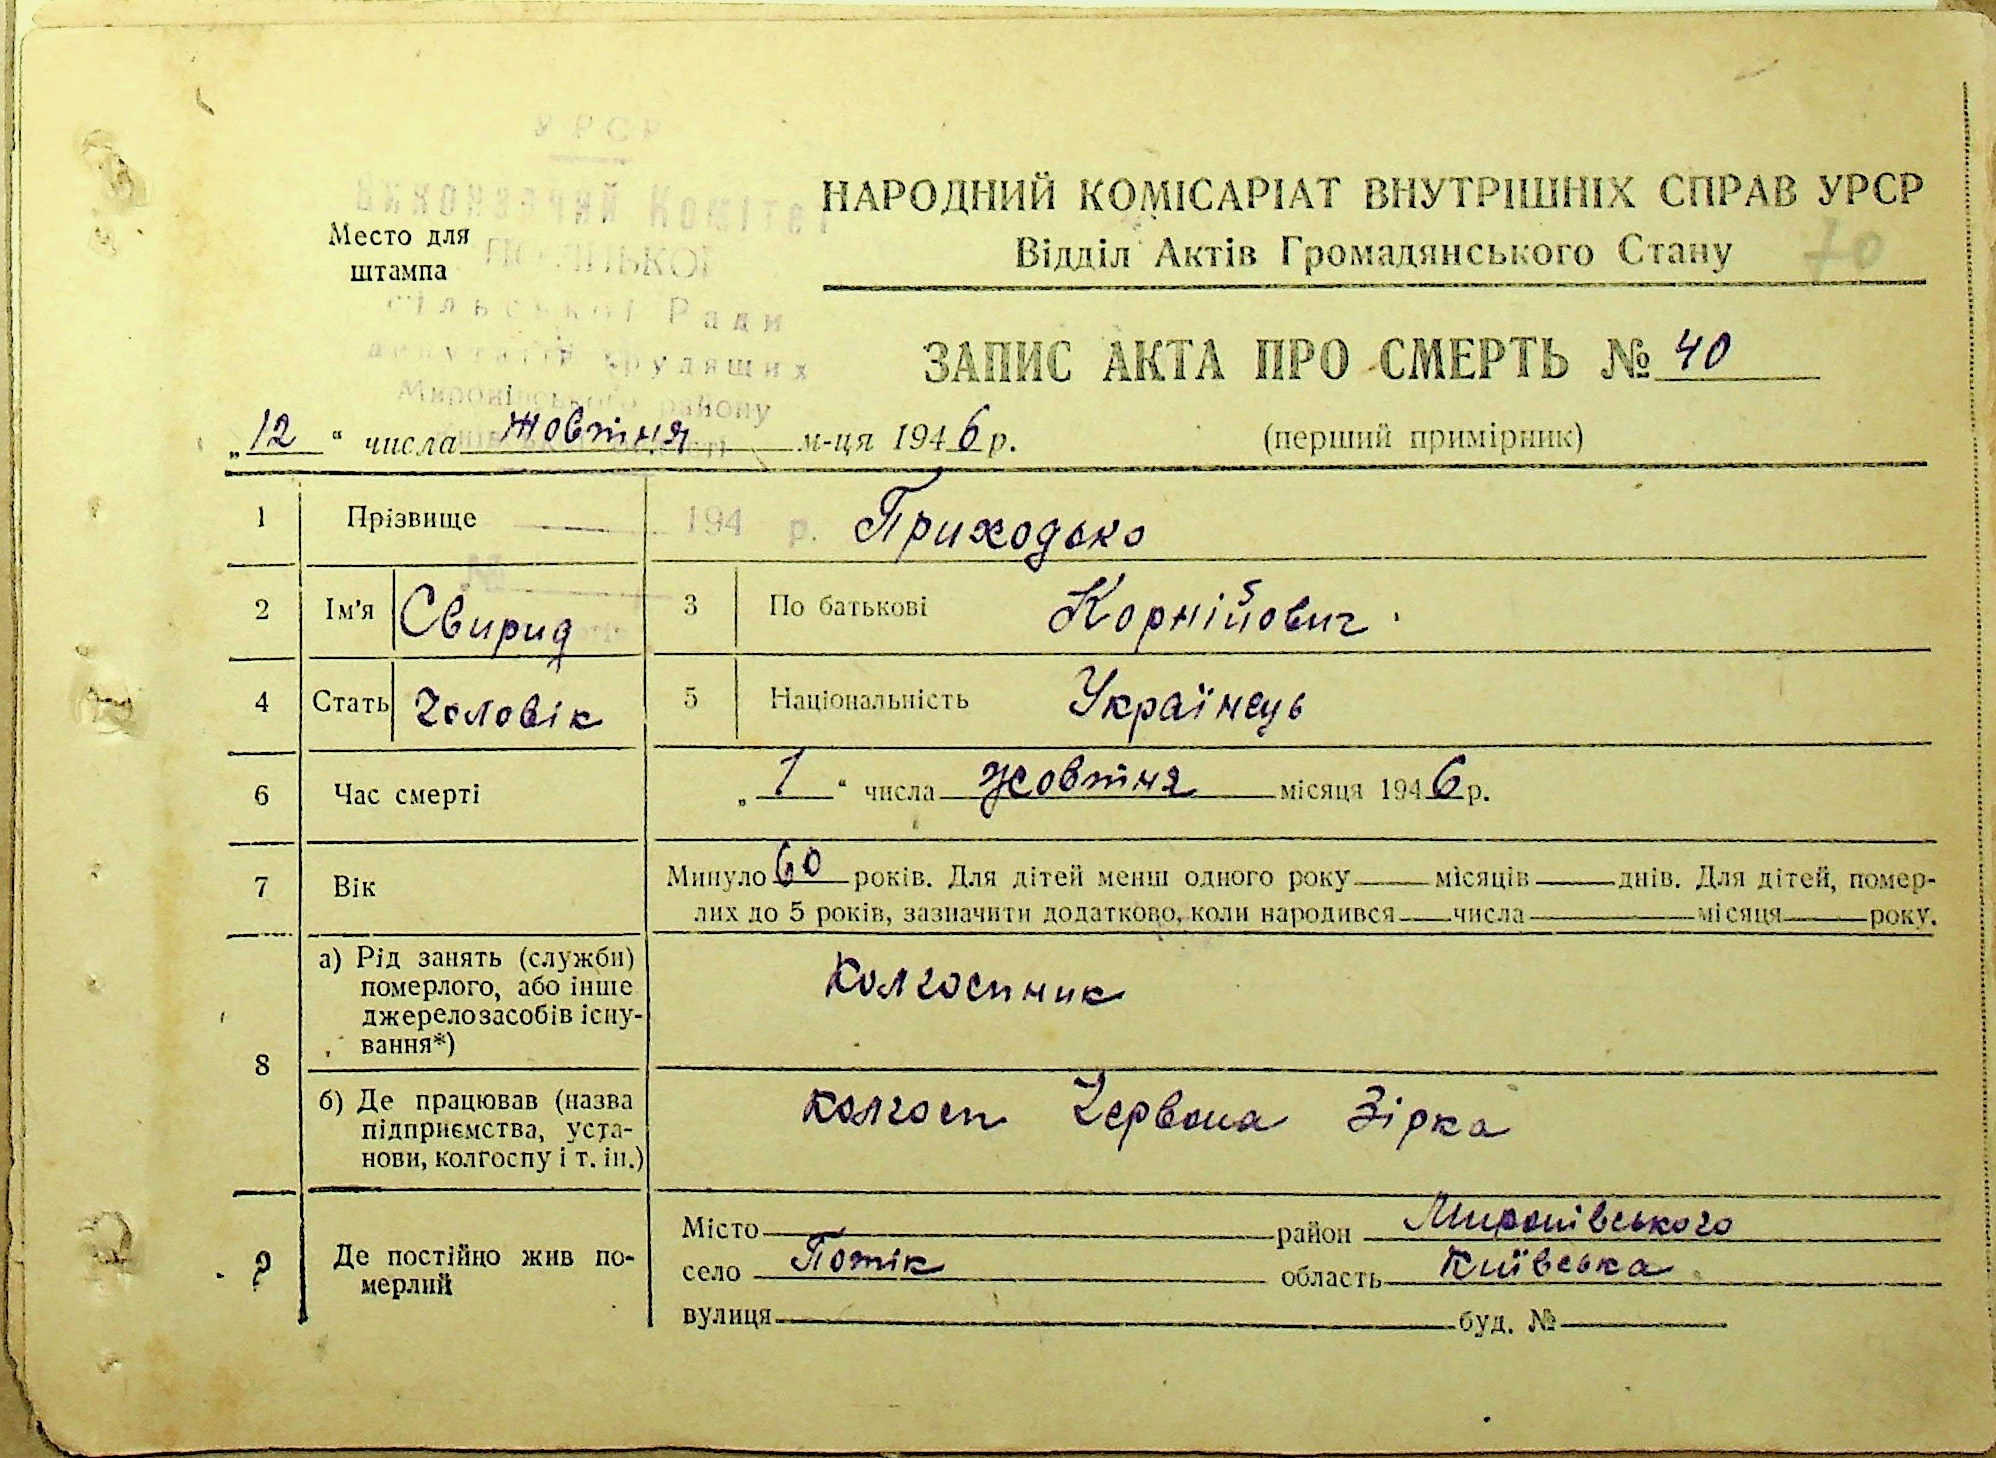 УРСР
Виконавчий Комітет
ПОТІЦЬКОЇ
Сільської Ради
депутатів трудящих
Миронівського району
194 р.
№
Место для
штампа
НАРОДНИЙ КОМІСАРІАТ ВНУТРІШНІХ СПРАВ УРСР
Відділ Актів Громадянського Стану
70
ЗАПИС АКТА ПРО СМЕРТЬ № 40
„12“ числа Жовтня м-ця 1946 р.
(перший примірник)
1 Прізвище Приходько
2 Ім'я Свирид 3 По батькові Корнійович
4 Стать чоловік 5 Національність Українець
6 Час смерті „1“ числа жовтня місяця 1946 р.
7 Вік Минуло 60 років. Для дітей менш одного року місяців днів. Для дітей, помер-
лих до 5 років, зазначити додатково, коли народився числа місяця року.
8 а) Рід занять (служби)
померлого, або інше
джерело засобів існу-
вання*)
Колгоспник
б) Де працював (назва
підприємства, уста-
нови, колгоспу і т. ін.)
колгосп Червона Зірка
9 Де постійно жив по-
мерлий
Місто район Миронівського
село Потік область Київська
вулиця буд. №